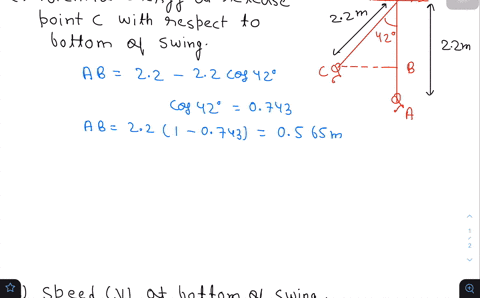 point C with respect to
bottom of swing.
AB = 2.2 - 2.2 cos 42°
cos 42° = 0.743
AB = 2.2 (1 - 0.743) = 0.565m
2.2m
42°
2.2m
C
B
A
) Speed (V) at bottom of swing.
1
2